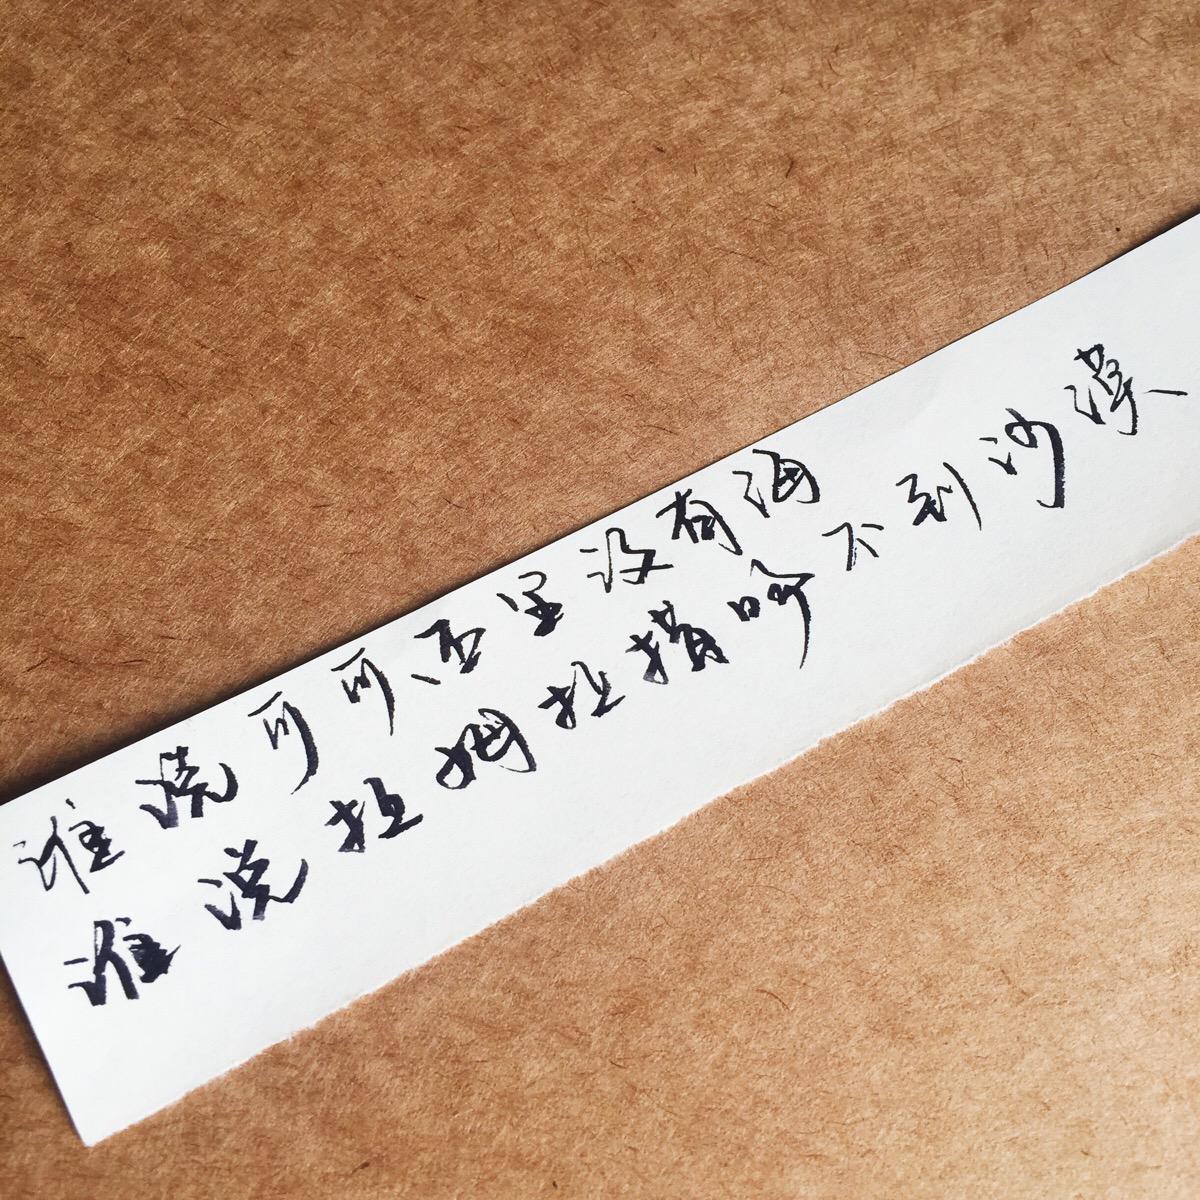 谁说可可西里没有海
谁说拉姆拉措吟不到沙漠